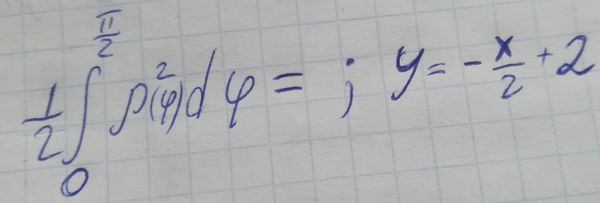 ½∫₀^{π/2} ρ²(φ)dφ = ; y = -x/2 + 2